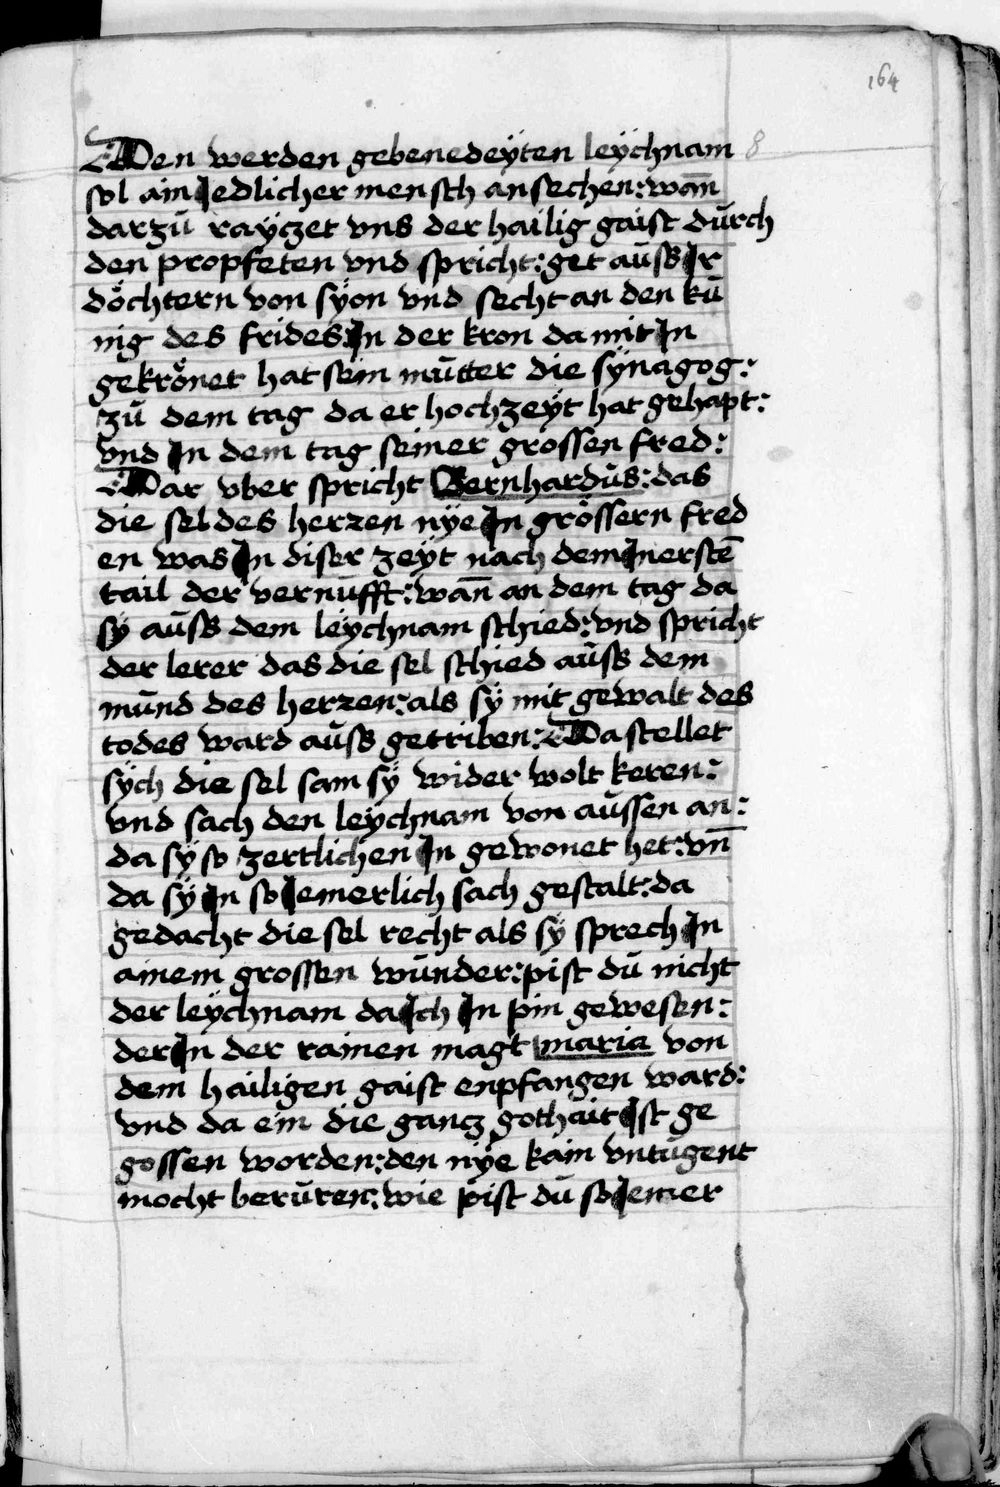 164
Den werden gebenedeÿten leÿchnam 8
sol ain Iedlicher mensch ansechen: wan̄
darzū raÿczet vns der hailig gaist dūrch
den propfeten vnd spricht: get aūss Ir
döchtern von sÿon vnd secht an den kū
nig des frides In der kron da mit In
gekrönet hat sein mūtter die sÿnagog:
zū dem tag da er hochzeÿt hat gehapt:
vnd In dem tag seiner grossen fred:
Dar vber spricht Bernhardūs: das
die sel des herzen nÿe In grössern fred
en was In diser zeÿt nach dem Inerstē
tail der vernūfft: wan̄ an dem tag da
sÿ aūss dem leÿchnam schied: vnd spricht
der lerer das die sel schied aūss dem
mūnd des herzen: als sÿ mit gewalt des
todes ward aūss getriben: Da stellet
sÿch die sel sam sÿ wider wolt keren:
vnd sach den leÿchnam von aūssen an:
da sÿ so zertlichen In gewonet het: vn̄
da sÿ In so Iemerlich sach gestalt: da
gedacht die sel recht als sÿ sprech In
ainem grossen wūnder: pist dū nicht
der leÿchnam da Ich In pin gewesen:
der In der rainen magt maria von
dem hailigen gaist enpfangen ward:
vnd da ein die gancz gothait Ist ge
gossen worden: den nÿe kain vntūgent
mocht berūren: wie pist dū so Iemer